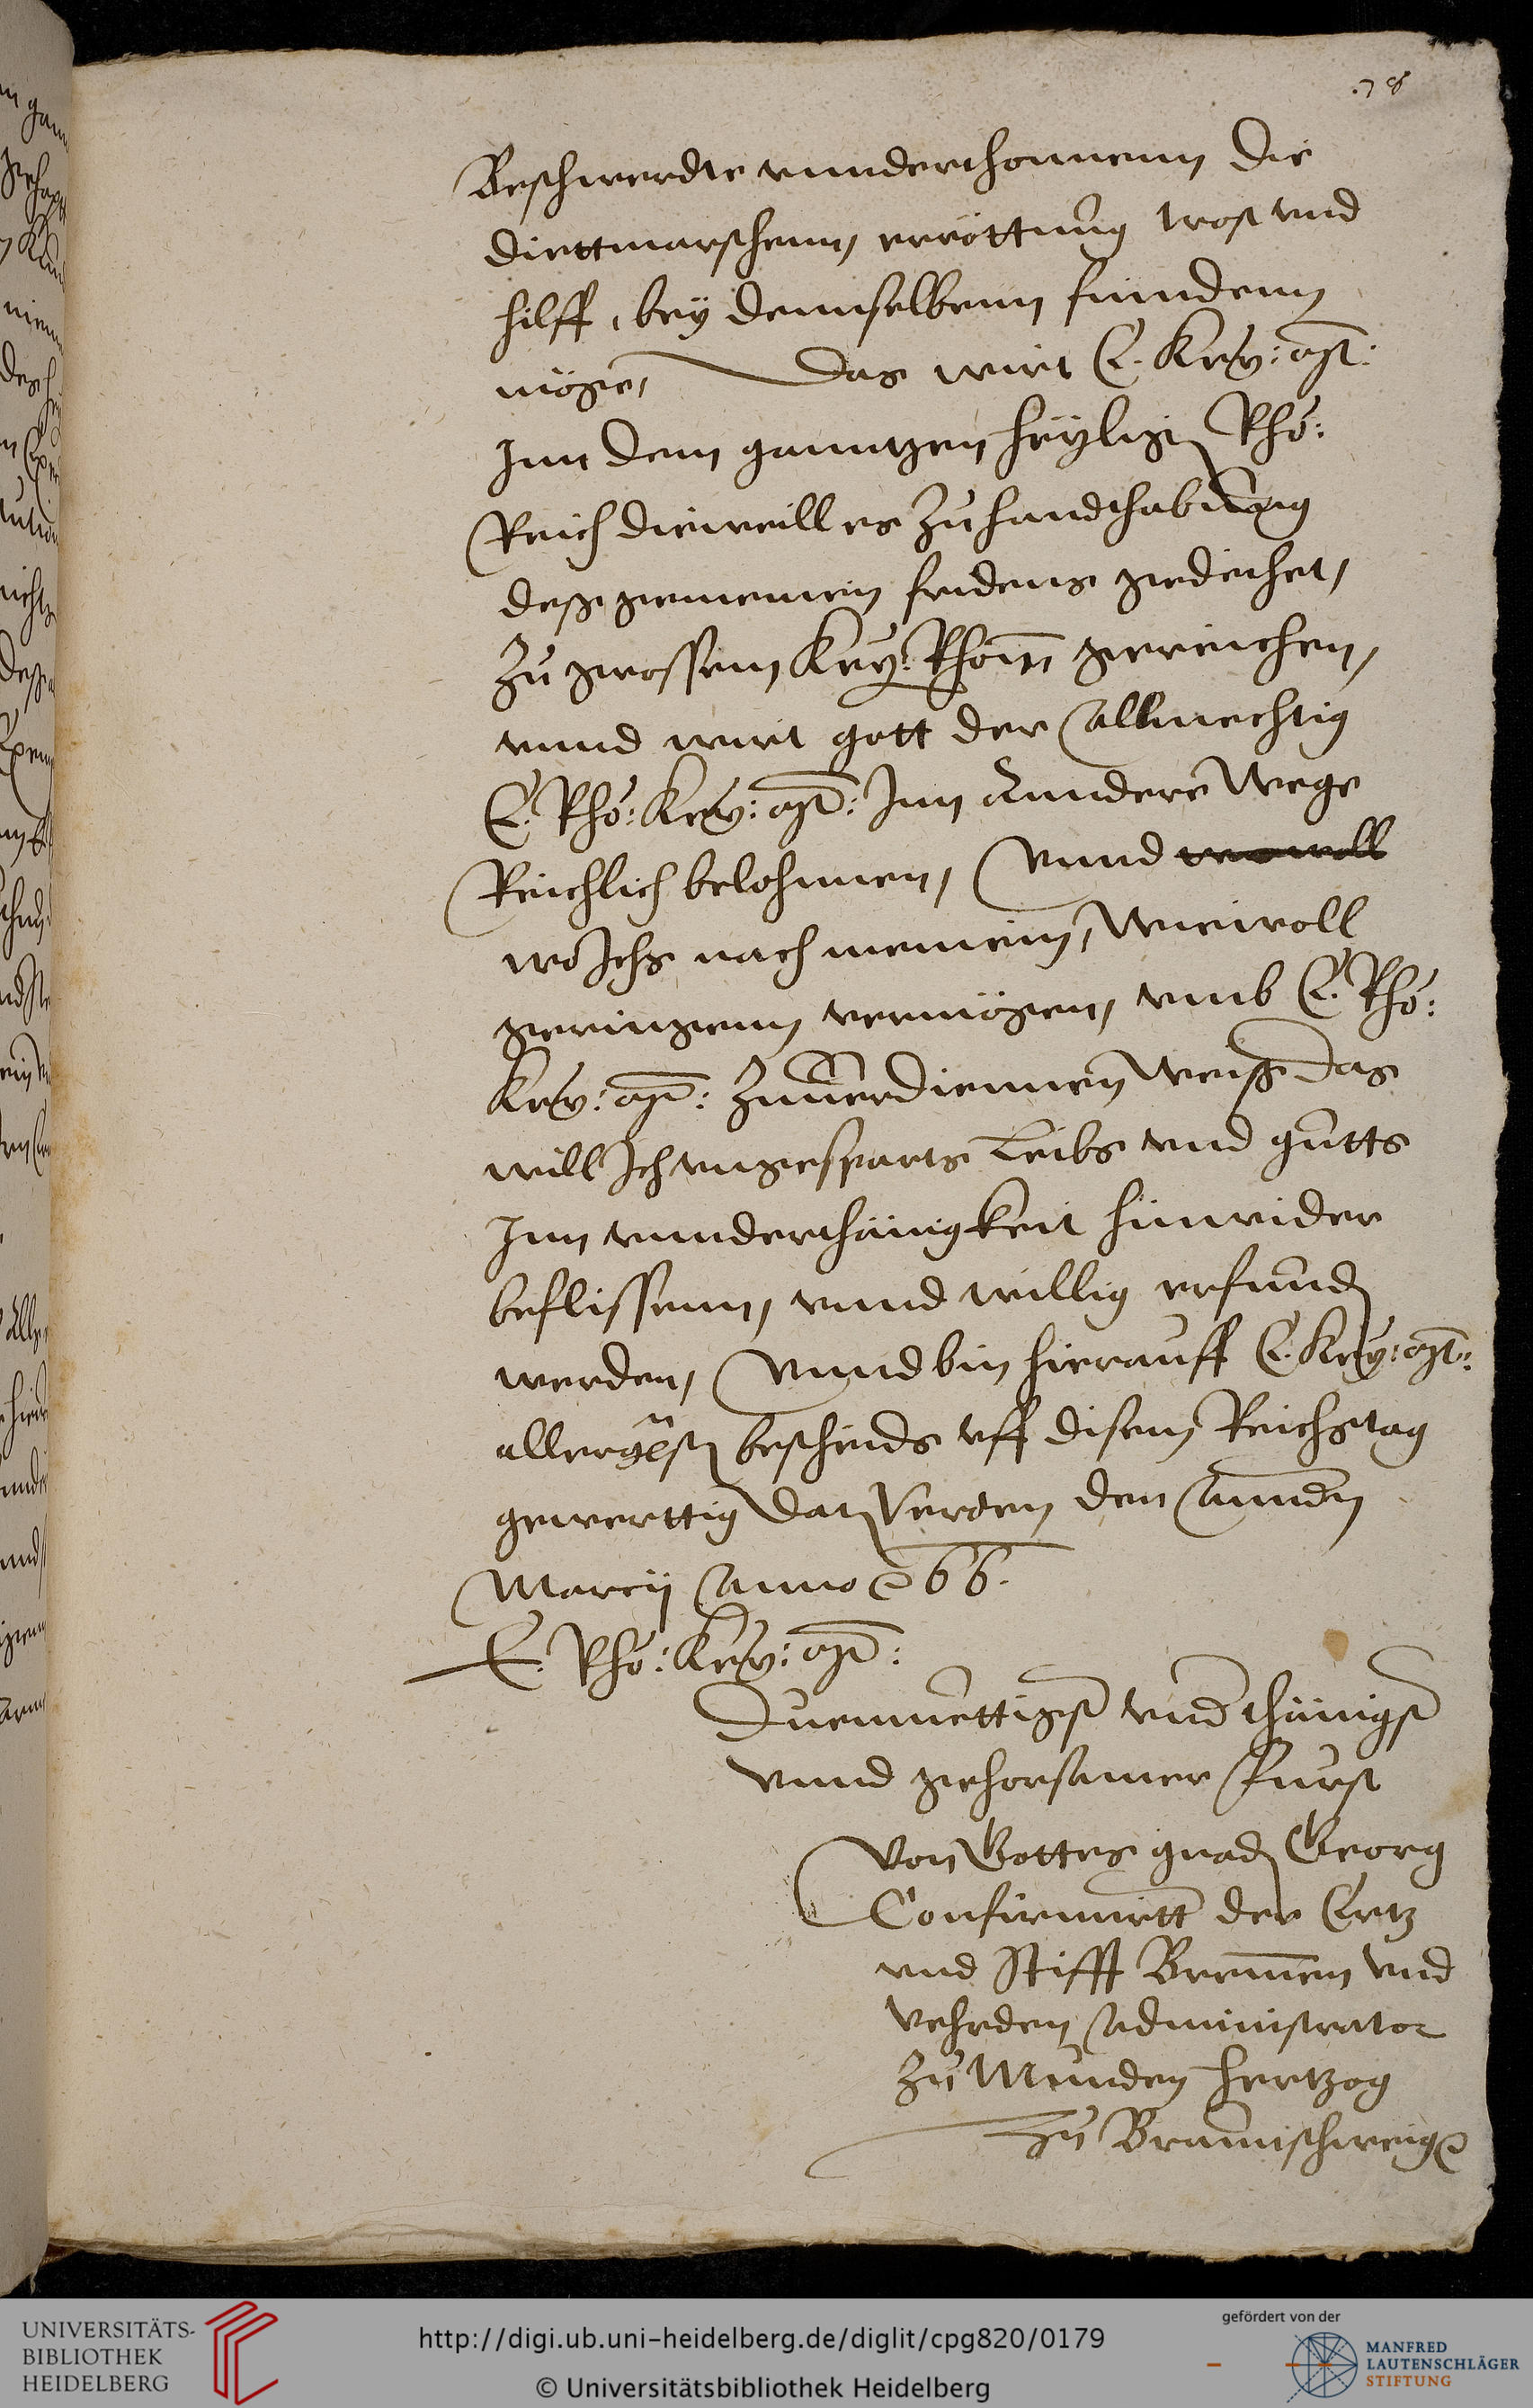 78
Beschwerdte vnnderthonnenn die
diettmarschenn, errottung trost vnd
hilff, bey dennselbenn finndenn
möge, das wirt E. Key: Mt:
Inn dem ganntzen heyligen Rhö:
Reich dieweill es zu handthabung
dess gemeinen fridens gedeihet,
Zu grossem Key: Rhom gereichen,
vnnd wirt gott der Allmechtig
E. Rhö: Key: Mt: Inn Anndere Wege
Reichlich belohnnen, Vnnd
wo Ichs nach meinem, Wiewoll
geringenn vermögen, vmb E. Rhö:
Key: Mt: Zuuerdiennen Weiss das
will Ich vngesparts Leibs vnd gutts
Inn vnnderthänigkeit hinwider
beflissenn, vnnd willig erfunden
werden, Vnnd bin hierauff E. Key: Mt:
allergst bescheids vff disem Reichstag
gewerttig Dat Verden den Annden
Marcij Anno 66.
E. Rhö: Key: Mt:
Diemuettigst vnd thänigst
vnnd gehorsamer Furst
Von Gottes gnaden Georg
Confirmirtt der Ertz
vnd Stifft Bremen vnd
Vehrden Administrator
Zu Munden Hertzog
Zu Braunschweig
UNIVERSITÄTS-
BIBLIOTHEK
HEIDELBERG
http://digi.ub.uni-heidelberg.de/diglit/cpg820/0179
© Universitätsbibliothek Heidelberg
gefördert von der
MANFRED
LAUTENSCHLÄGER
STIFTUNG